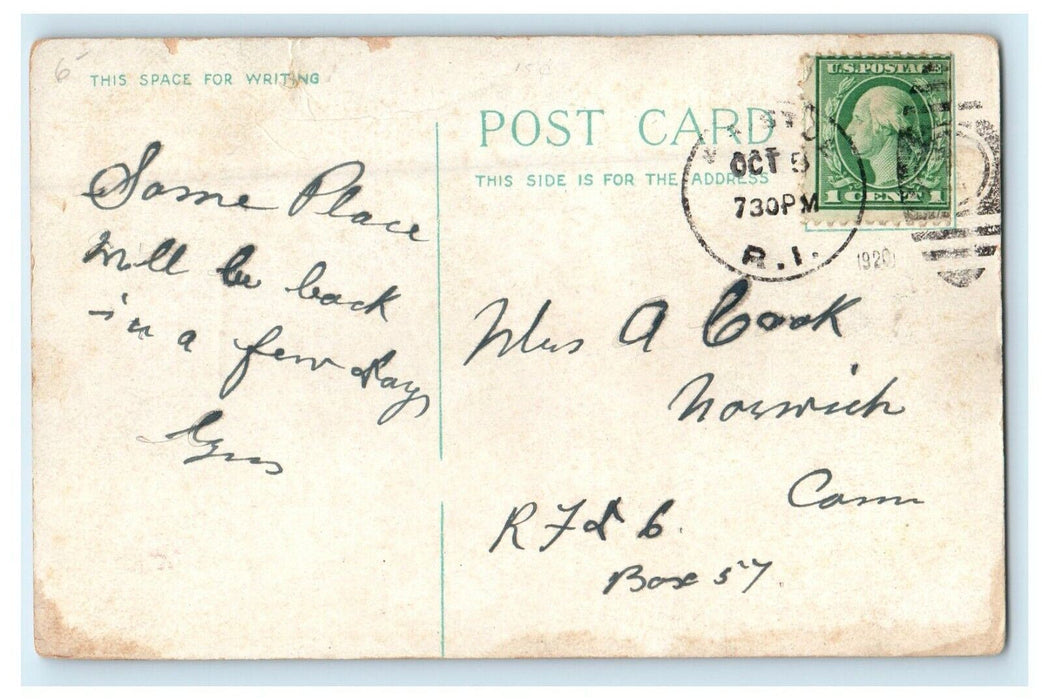 6-
15¢
THIS SPACE FOR WRITING
POST CARD
THIS SIDE IS FOR THE ADDRESS
U.S. POSTAGE
1 CENT 1
OCT 5
730PM
R.I.
1920
Some Place
Will be back
in a few days
Gus
Mrs A Cook
Norwich
Conn
R F d 6.
Box 57